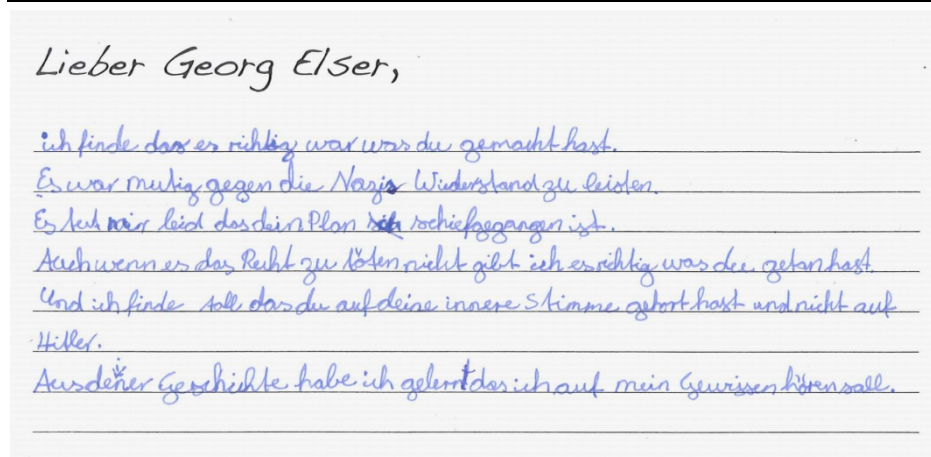 Lieber Georg Elser,
ich finde das es richtig war was du gemacht hast.
Es war mutig gegen die Nazis Wiederstand zu leisten.
Es tut mir leid das dein Plan schiefgegangen ist.
Auch wenn es das Recht zu töten nicht gibt ich es richtig was du getan hast.
Und ich finde toll das du auf deine innere Stimme gehört hast und nicht auf
Hitler.
Aus deiner Geschichte habe ich gelernt das ich auf mein Gewissen hören soll.